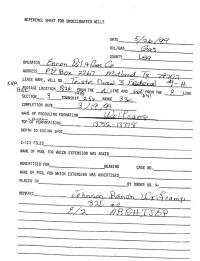 REFERENCE SHEET FOR UNDESIGNATED WELLS
DATE 5/26/99
OIL/GAS Gas
COUNTY Lea
OPERATOR Enron Oil & Gas Co
ADDRESS PO Box 2267 Midland Tx 79702
LEASE NAME, WELL NO. Triste Draw 3 Federal
FOOTAGE LOCATION FROM THE LINE AND FROM THE LINE
SECTION 3 TOWNSHIP 25s RANGE 33e
COMPLETION DATE 3/19/99
NAME OF PRODUCING FORMATION Wolfcamp
TOP OF PERFORATIONS
DEPTH TO CASING SHOE
C-123 FILED
NAME OF POOL FOR WHICH EXTENSION WAS ASKED
ADVERTISED FOR HEARING CASE NO.
NAME OF POOL FOR WHICH EXTENSION WAS ADVERTISED
PLACED IN BY ORDER NO. R-
REMARKS Johnson Ranch Wolfcamp
E/2